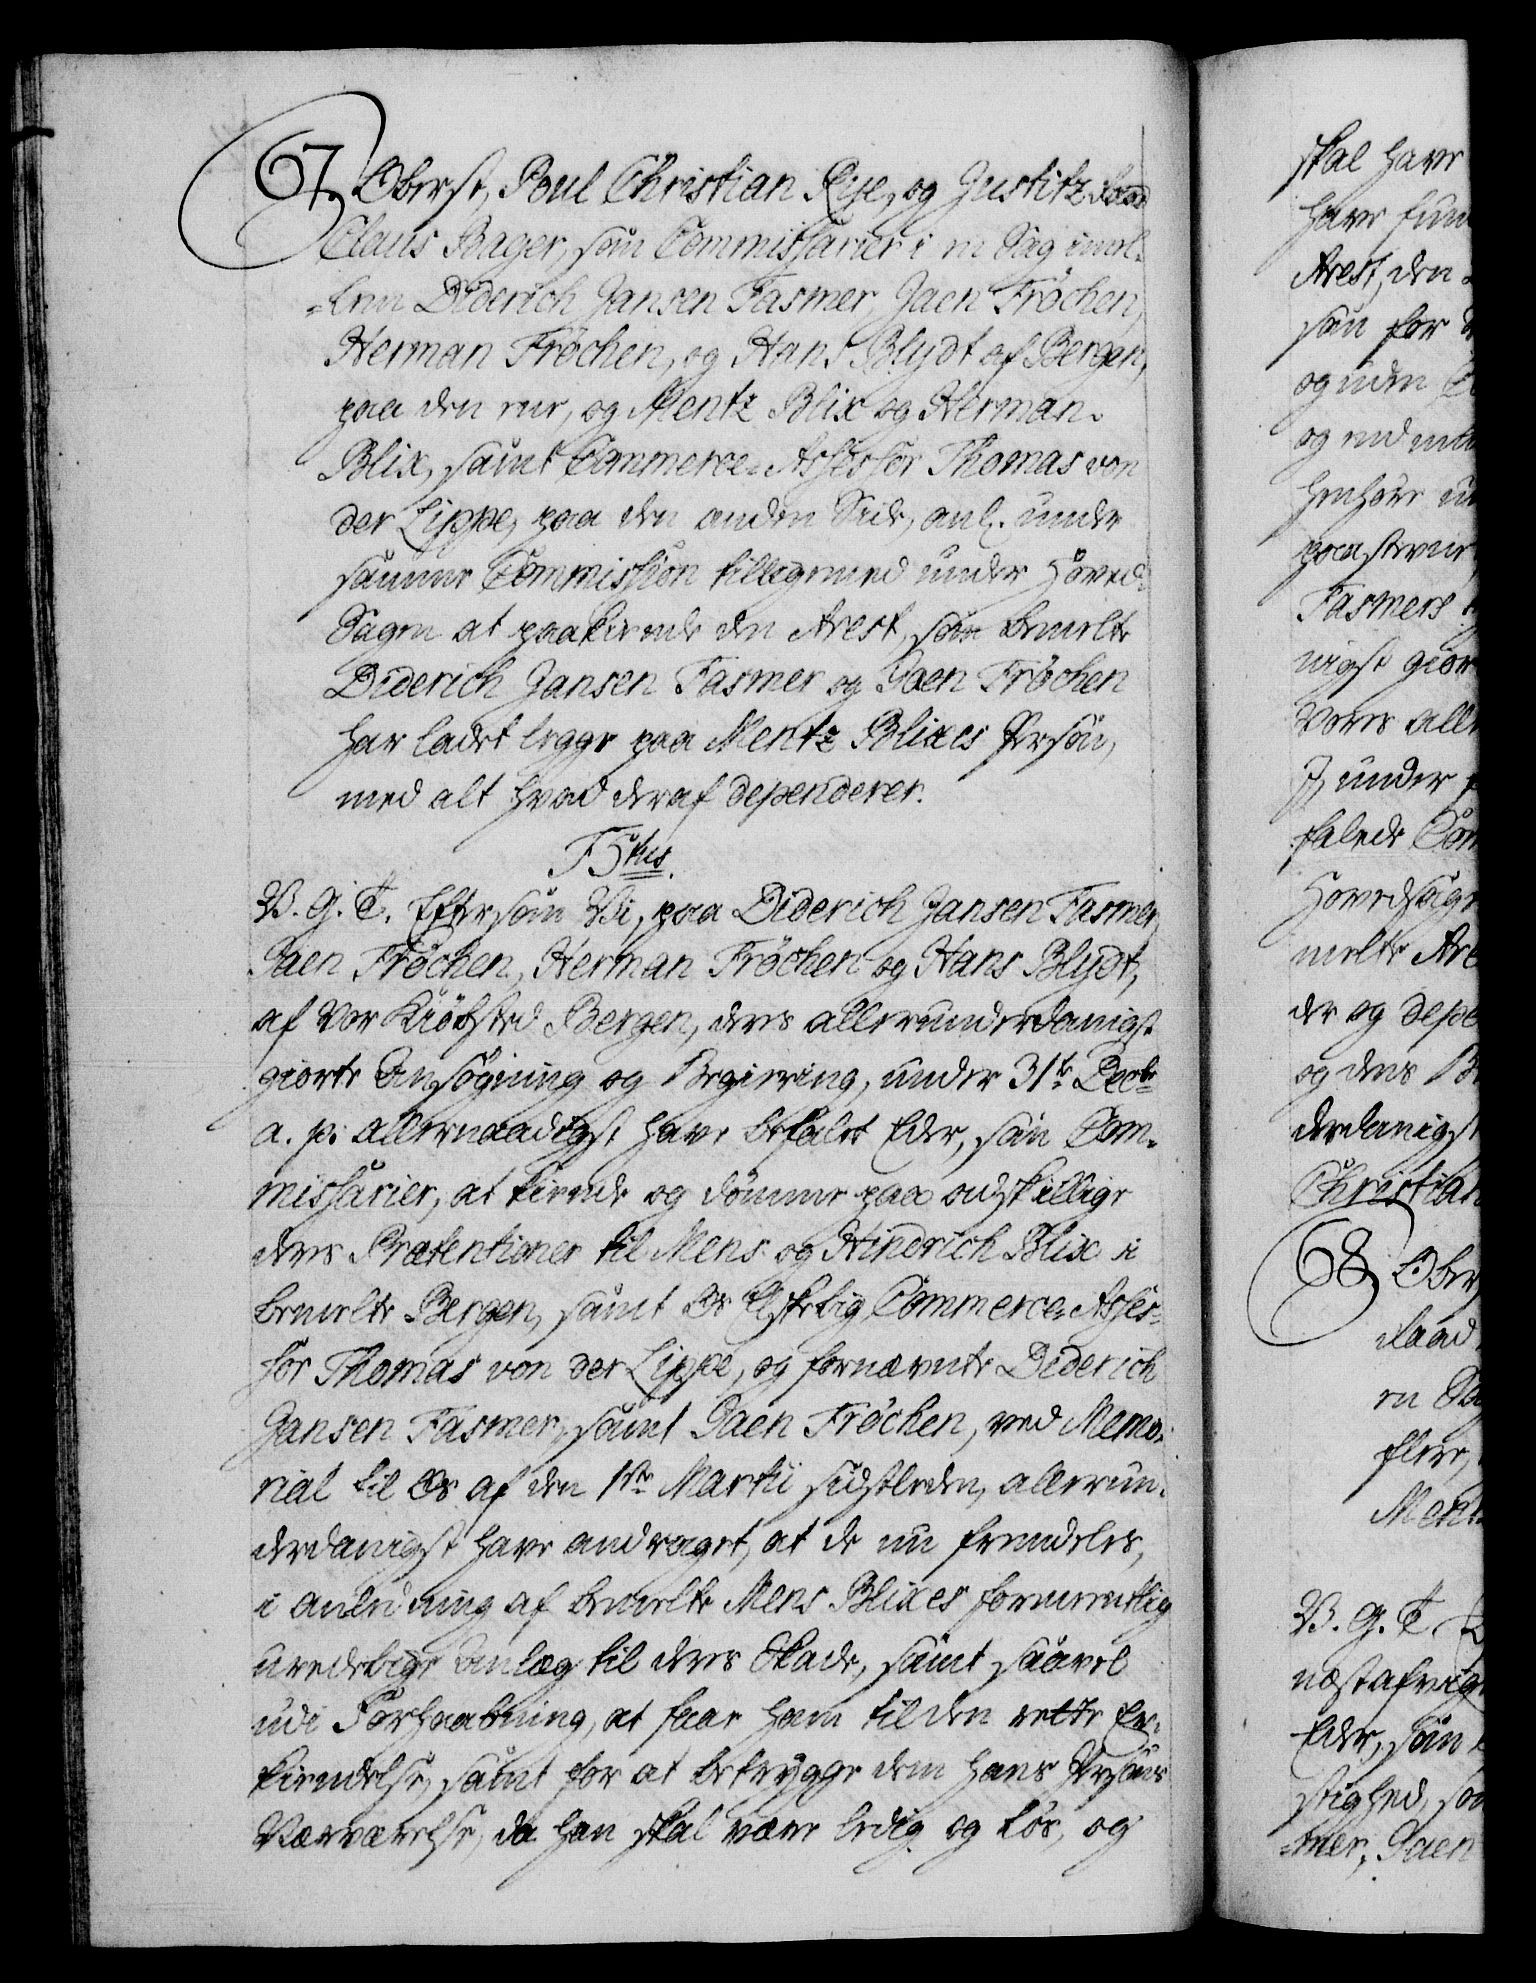 67. Oberst, Poul Christian Rye, og Justitz Raad
Claus Bager, som Commissarier i en Sag imel-
=lem Diderich Jansen Fasmer, Jaen Fröchen,
Herman Fröchen, og Hans Blydt af Bergen,
paa den ene, og Mentz Blix og Herman
Blix, samt Commerce-Assessor Thomas von
der Lippe, paa den anden Side, anl. under
samme Commission tilligemed under Hoved-
Sagen at paakiende den Arest, som bemelte
Diderich Jansen Fasmer og Jaen Fröchen
har ladet legge paa Mentz Blixes Person,
med alt hvad deraf dependerer.
F5tus.
V. G. T. Eftersom Vi, paa Diderich Jansen Fasmer,
Jaen Fröchen, Herman Fröchen og Hans Blydt,
af Vor Kiöbsted Bergen, deres allerunderdanigst
giorte Ansögning og Begiering, under 31te Decbr
a. p. allernaadigst have befalet Eder, som Com-
missarier, at kiende og dömme paa adskillige
deres Prætentioner til Mens og Hindrich Blix i
bemelte Bergen, samt Os Elskelig Commerce-Asses-
sor Thomas von der Lippe, og fornævnte Diderich
Jansen Fasmer, samt Jaen Fröchen, ved Memo-
rial til Os af den 1ste Martii sidstleden, allerun-
derdanigst have andraget, at de nu fremdeles,
i anledning af bemelte Mens Blixes formeentlig
uredelige Anlæg til deres Skade, samt saavel
udi Forhaabning, at faae ham til den rette Er-
kiendelse, samt for at betrygge dem hans Persons
Nærværelse, da han skal være ledig og lös, og
skal have
have fund
Arest, den
som for
og uden
og
henhöre
paastevne
Fasmers
nigst giort
Vores aller
I, under
falede Com
Hovedsagen
melte Are
der og depe
og deres
derdanigst
Christian
68. Ober
Raad
en Sag
flere,
Ment
V. G. T.
næstafvigt
Eder, som
stighed, som
=mer, Jaen